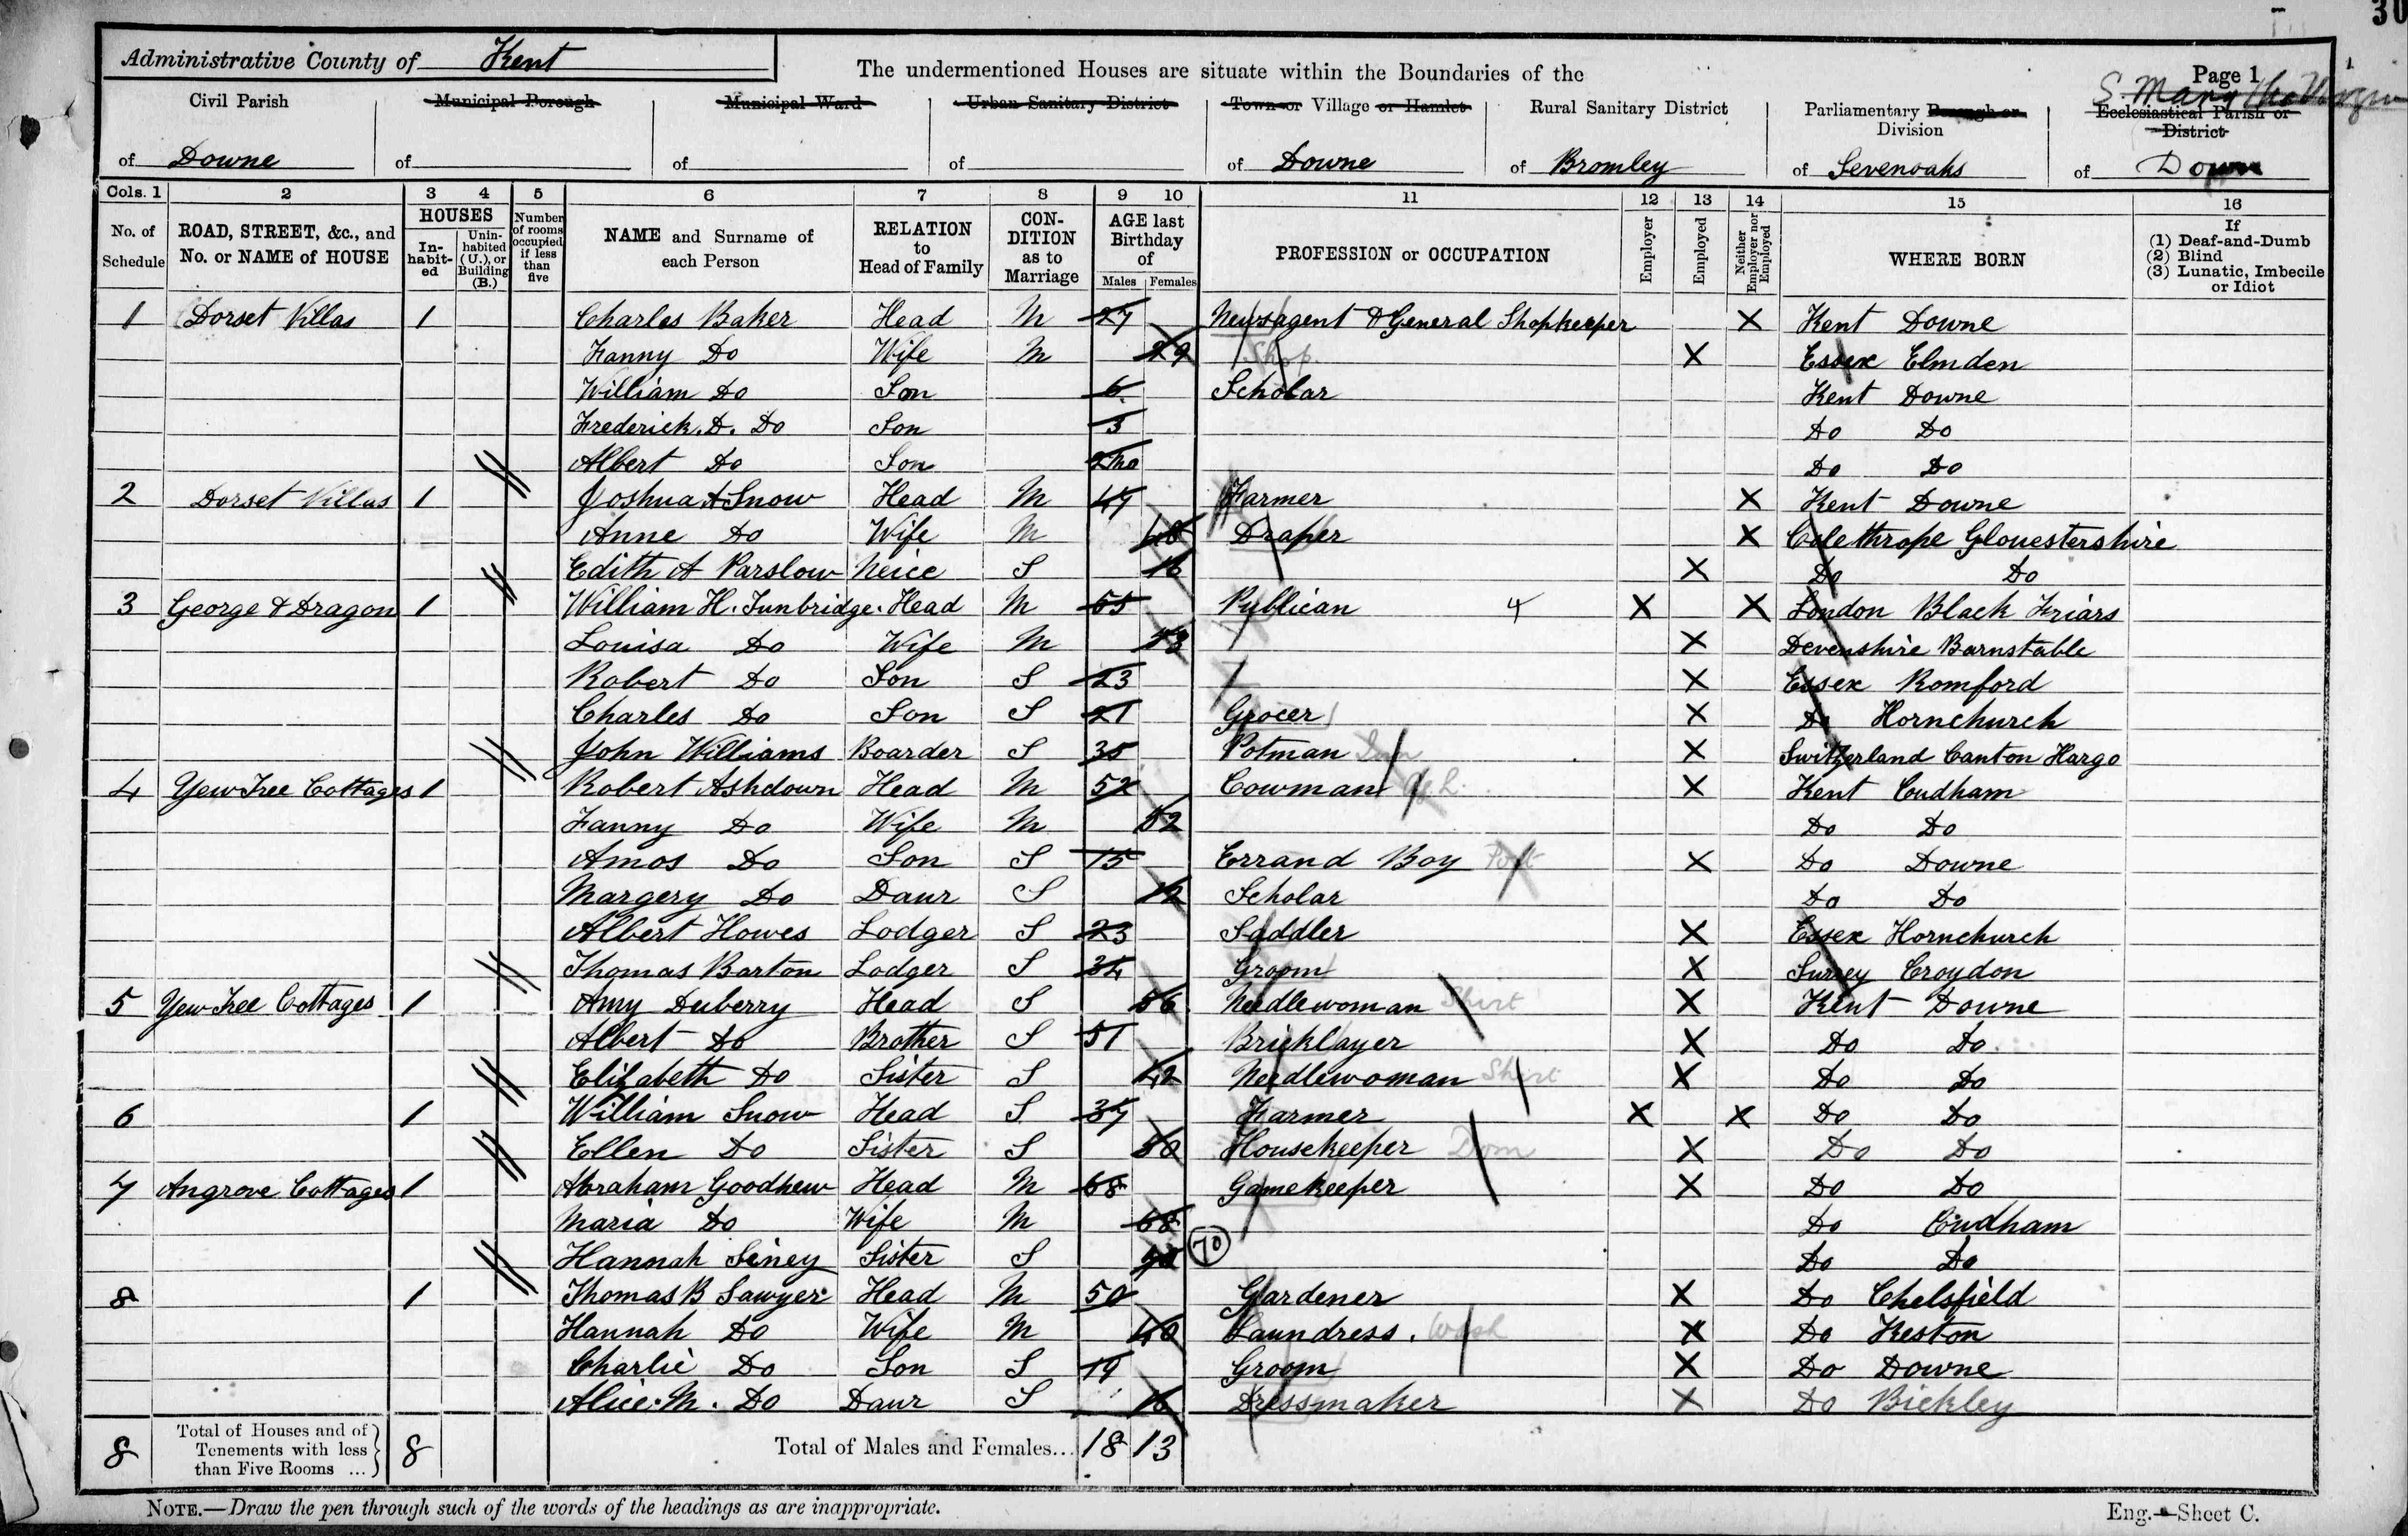 30
Administrative County of Kent
The undermentioned Houses are situate within the Boundaries of the
Page 1
Civil Parish of Downe
Municipal Borough of
Municipal Ward of
Urban Sanitary District of
Town or Village or Hamlet of Downe
Rural Sanitary District of Bromley
Parliamentary Borough or Division of Sevenoaks
S. Mary the Virgin
Ecclesiastical Parish or District of Down
Cols. 1 2 3 4 5 6 7 8 9 10 11 12 13 14 15 16
No. of Schedule
ROAD, STREET, &c., and No. or NAME of HOUSE
HOUSES
In-habit-ed
Unin-habited (U.), or Building (B.)
Number of rooms occupied if less than five
NAME and Surname of each Person
RELATION to Head of Family
CON-DITION as to Marriage
AGE last Birthday of
Males Females
PROFESSION or OCCUPATION
Employer
Employed
Neither Employer nor Employed
WHERE BORN
If
(1) Deaf-and-Dumb
(2) Blind
(3) Lunatic, Imbecile or Idiot
1 Dorset Villas 1 Charles Baker Head M 27 Newsagent & General Shopkeeper X Kent Downe
Fanny Do Wife M 29 Shop X Essex Elmden
William Do Son 6 Scholar Kent Downe
Frederick. D. Do Son 3 Do Do
Albert Do Son 2 Mo Do Do
2 Dorset Villas 1 Joshua A Snow Head M 47 Farmer X Kent Downe
Anne Do Wife M Draper X Colethrope Glouestershire
Edith A Parslow Neice S 16 X Do Do
3 George & Dragon 1 William H. Tunbridge. Head M 55 Publican 4 X X London Black Friars
Louisa Do Wife M X Devenshire Barnstable
Robert Do Son S 23 X Essex Romford
Charles Do Son S 21 Grocer X Do Hornchurch
John Williams Boarder S 35 Potman Inn X Switzerland Canton Hargo
4 Yew Tree Cottages 1 Robert Ashdown Head M 52 Cowman Ag. L. X Kent Cudham
Fanny Do Wife M 52 Do Do
Amos Do Son S 15 Errand Boy Port X Do Downe
Margery Do Daur S 12 Scholar Do Do
Albert Howes Lodger S 23 Saddler X Essex Hornchurch
Thomas Barton Lodger S 34 Groom X Surrey Croydon
5 Yew Tree Cottages 1 Amy Duberry Head S 56 Needlewoman Shirt X Kent Downe
Albert Do Brother S 51 Bricklayer X Do Do
Elizabeth Do Sister S 42 Needlewoman Shirt X Do Do
6 1 William Snow Head S 37 Farmer X X Do Do
Ellen Do Sister S 50 Housekeeper Dom X Do Do
7 Angrove Cottages 1 Abraham Goodhew Head M 68 Gamekeeper X Do Do
Maria Do Wife M 68 Do Cudham
Hannah Siney Sister S 70 Do Do
8 1 Thomas B Sawyer Head M 50 Gardener X Do Chelsfield
Hannah Do Wife M 40 Laundress. Wash X Do Keston
Charlie Do Son S 19 Groom X Do Downe
Alice. M. Do Daur S 16 Dressmaker X Do Bickley
8 Total of Houses and of Tenements with less than Five Rooms ... 8 Total of Males and Females... 18 13
NOTE.—Draw the pen through such of the words of the headings as are inappropriate.
Eng.—Sheet C.